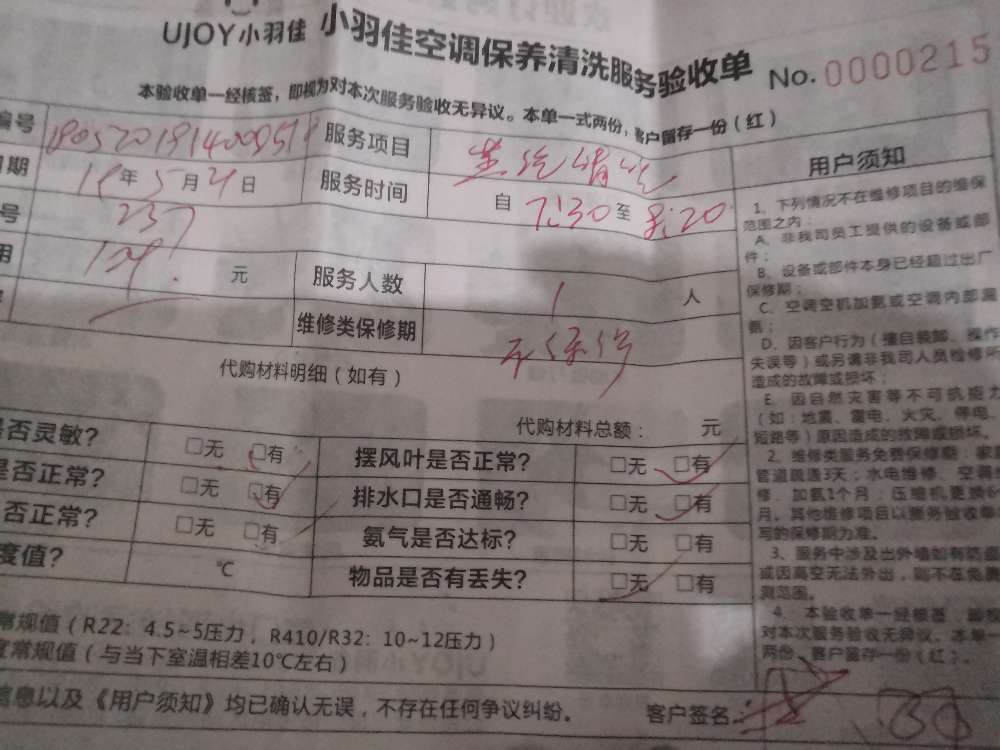 UJOY小羽佳 小羽佳空调保养清洗服务验收单 No. 0000215
本验收单一经核签，即视为对本次服务验收无异议。本单一式两份，客户留存一份（红）
编号 服务项目
期 19年5月21日 服务时间 自 7:30 至 8:20
号 237
用 129. 元 服务人数 1 人
维修类保修期 不保修
代购材料明细（如有）
代购材料总额： 元
是否灵敏? □无 □有 摆风叶是否正常? □无 □有
是否正常? □无 □有 排水口是否通畅? □无 □有
否正常? □无 □有 氨气是否达标? □无 □有
度值? ℃ 物品是否有丢失? □无 □有
常规值（R22：4.5~5压力，R410/R32：10~12压力）
度常规值（与当下室温相差10℃左右）
信息以及《用户须知》均已确认无误，不存在任何争议纠纷。 客户签名：
用户须知
1、下列情况不在维修项目的维保
范围之内：
A、非我司员工提供的设备或部
件；
B、设备或部件本身已经超过出厂
保修期；
C、空调空机加氨或空调内部漏
氨；
D、因客户行为（擅自装卸、操作
失误等）或另请非我司人员检修所
造成的故障或损坏；
E、因自然灾害等不可抗力
（如：地震、雷电、火灾、停电、
短路等）原因造成的故障或损坏。
2、维修类服务免费保修期：家庭
管道疏通3天；水电维修、空调
修、加氨1个月；压缩机更换
月。其他维修项目以服务验收单
写的保修期为准。
3、服务中涉及出外墙如有防盗
或因高空无法外出，则不在免费
测范围。
4、本验收单一经核签，即视
对本次服务验收无异议。本单一
两份，客户留存一份（红）。